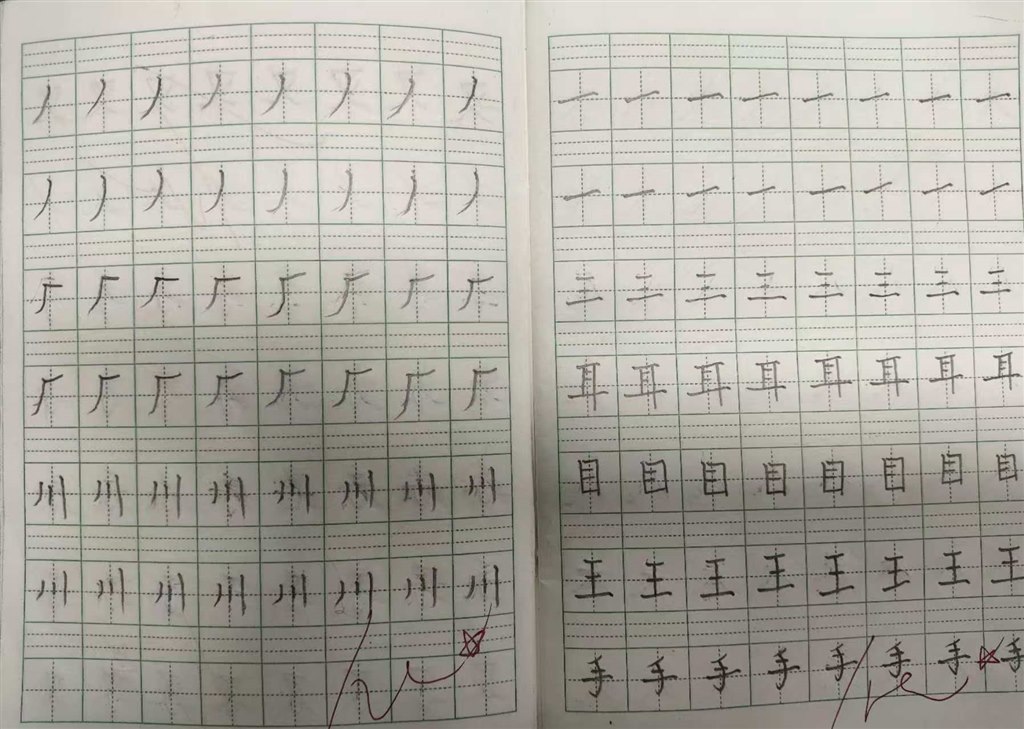 丿丿丿丿丿丿丿丿
丿丿丿丿丿丿丿丿
厂厂厂厂厂厂厂厂
厂厂厂厂厂厂厂厂
川川川川川川川川
川川川川川川川川
一一一一一一一一
一一一一一一一一
三三三三三三三三
耳耳耳耳耳耳耳耳
目目目目目目目目
王王王王王王王王
手手手手手手手手